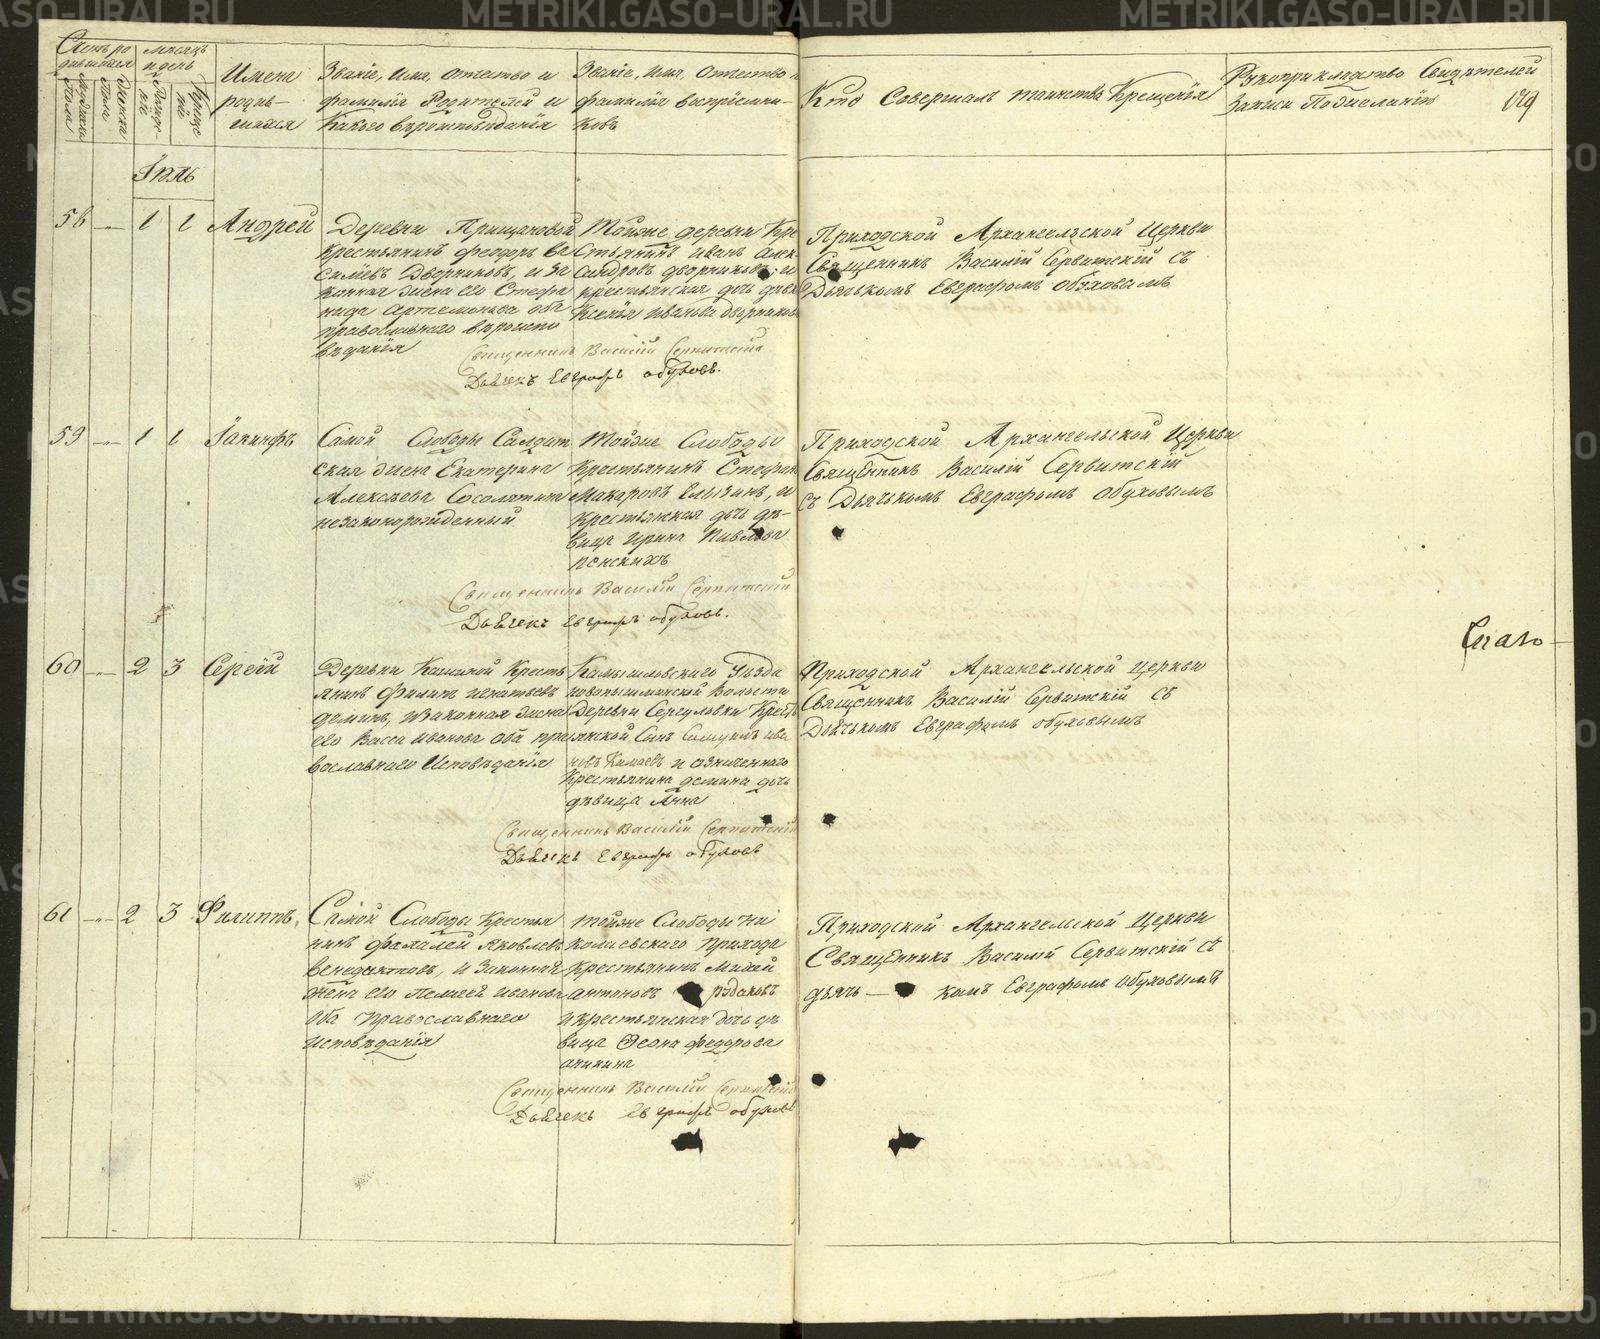 Счетъ ро
дившихся
Мужеска
Пола
Женска
Пола
мѣсяцъ
и день
Рожде-
нiе
Креще
нiе
Имена
родив-
шихся
Званiе, Имя, отчество и
фамилiя Родителей и
Какого вѣроисповѣданiя
Званiе, имя, отчество и
фамилiя воспрiемни-
ковъ
Кто Совершалъ таинство Крещенiя
Рукоприкладство Свидѣтелей
Записи По желанiю
Iюль
58
1
1
Андрей
Деревни
крестьянинъ Феодоръ Ва
силiевъ Дворниковъ, и За
конная жена его Стефа
нида Артемоньева оба
православнаго вѣроиспо
вѣданiя
Тойже деревни Кре
стьянинъ Иванъ Алек
сандровъ дворниковъ, и
крестьянская дочь дѣви
Ксенiя Иванова Дворникова
Приходской Архангельской Церкви
Священникъ Василiй Сервитскiй съ
Дьячькомъ Евграфомъ Обуховымъ
Священникъ Василiй Серпитскiй
Дьячекъ Евграфъ обуховъ.
59
1
1
Iакинфъ
Самой Слободы Салдат
ская жена Екатерина
Алексѣева
незаконорожденный
Тойже Слободы
Крестьянинъ Стефанъ
Макаровъ Елызинъ, и
Крестьянская дочь дѣ-
вица Ирина Павлова
Пенскихъ
Приходской Архангельской Церкви
Священникъ Василiй Сервитскiй
съ Дьячькомъ Евграфомъ Обуховымъ
Священникъ Василiй Серпитскiй
Дьячекъ Евграфъ обуховъ.
60
2
3
Сергiй
Деревни Кашиной Кресть
янинъ Филипъ Игнатьевъ
деминъ, И Законная жена
его Васса Иванова Оба пра
вославнаго Исповѣданiя
Камышловскаго Уѣзда
новопышминской Волости
Деревни Сергуловки Кресть
янской Сынъ Самуилъ Ива
новъ и означеннаго
Крестьянина демина дочь
дѣвица Анна
Приходской Архангельской Церкви
Священникъ Василiй Сервитскiй съ
Дьячькомъ Евграфомъ обуховымъ
Священникъ Василiй Серпитскiй
Дьячекъ Евграфъ обуховъ
61
2
3
Филиппъ
Самой Слободы Крестья
нинъ Фалалей Яковлевъ
Венедиктовъ, и Законная
жена его Пелагея Иванова
Оба Православнаго
Исповѣданiя
Тойже Слободы Ни
колаевскаго прихода
Крестьянинъ Михаи
антоновъ Рудаковъ
и крестьянская дочь дѣ
вица Феона федорова
аникина
Приходской Архангельской Церкви
Священникъ Василiй Сервитскiй съ
дьячь— комъ Евграфомъ обуховымъ
Священникъ Василiй Серпитскiй
Дьячекъ Евграфъ обуховъ
METRIKI.GASO-URAL.RU